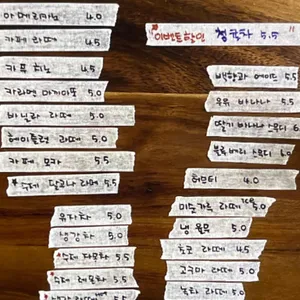 아메리카노 4.0
카페 라떼 4.5
카푸치노 4.5
카라멜 마끼아또 5.0
바닐라 라떼 5.0
헤이즐넛 라떼 5.0
카페 모카 5.5
수제 달고나 라떼 5.5
유자차 5.0
생강차 5.0
수제 자몽차 5.5
수제 레몬차 5.5
생강 라떼
이벤트할인 청귤차 5.5
백향과 에이드 5.5
우유 바나나 5.5
딸기 바나나 스무디
블루베리 스무디
허브티 4.0
미숫가루 라떼 5.0
냉 율무 5.0
초코 라떼 4.5
고구마 라떼 5.0
녹차 라떼 5.0